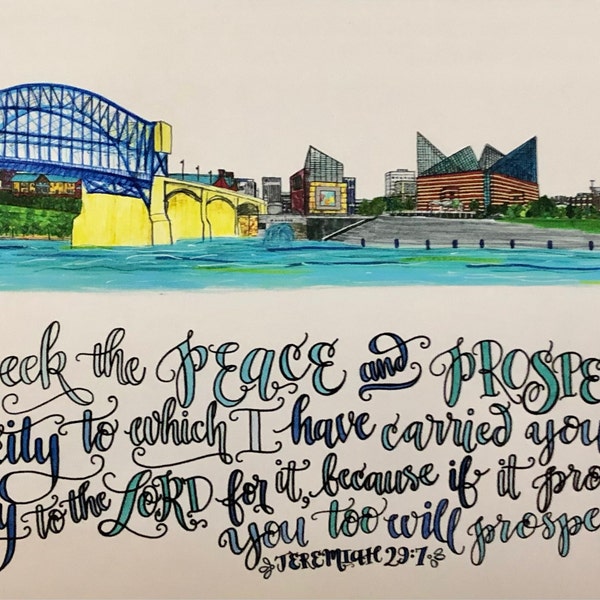 eek the PEACE and PROSPE
city to which I have carried you
y to the LORD for it, because if it pro
you too will prospe
JEREMIAH 29:7